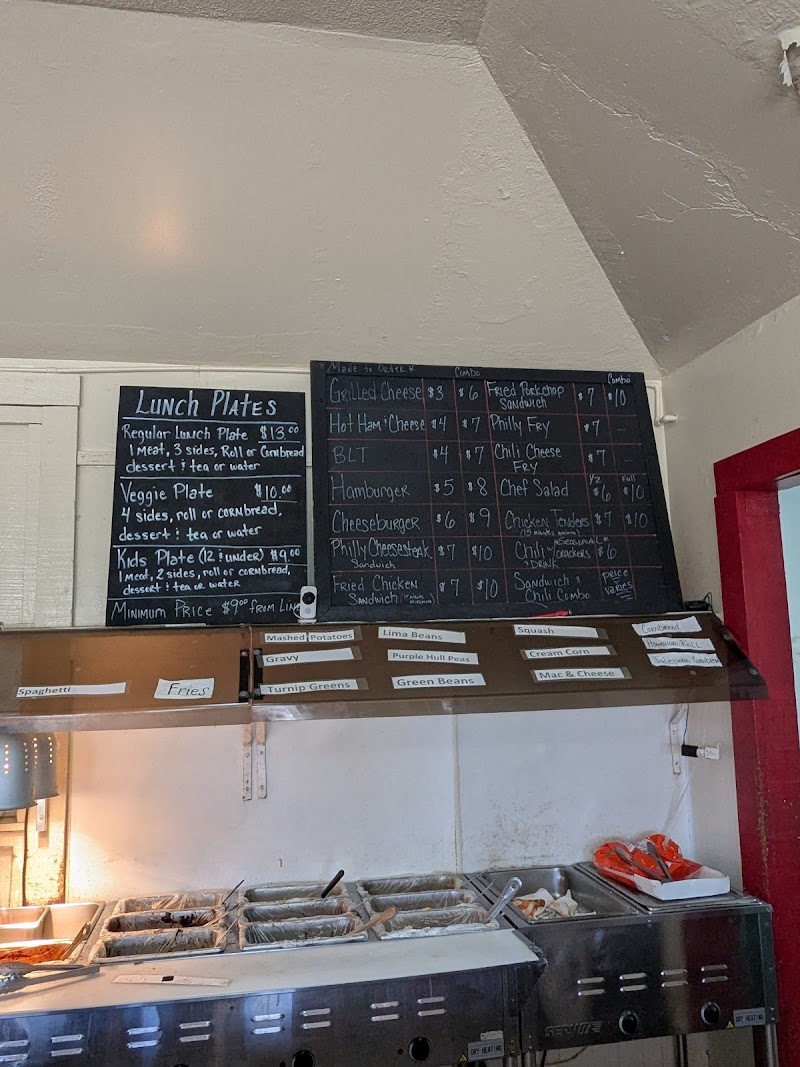 LUNCH PLATES
Regular Lunch Plate $13.00
1 meat, 3 sides, Roll or Cornbread
dessert & tea or water
Veggie Plate $10.00
4 sides, roll or cornbread,
dessert & tea or water
Kids Plate (12 & under) $9.00
1 meat, 2 sides, roll or cornbread,
dessert & tea or water
Minimum Price $9.00 from Line
Made to Order*
Combo
Grilled Cheese $3 $6
Hot Ham & Cheese $4 $7
BLT $4 $7
Hamburger $5 $8
Cheeseburger $6 $9
Philly Cheesesteak $7 $10
Sandwich
Fried Chicken $7 $10
Sandwich
Combo
Fried Porkchop $7 $10
Sandwich
Philly Fry $7 -
Chili Cheese $7 -
Fry
1/2 Full
Chef Salad $6 $10
Chicken Tenders $7 $10
*Seasonal*
Chili w/ crackers $6
& Drink
Sandwich & Price
Chili Combo Varies
Spaghetti
Fries
Mashed Potatoes
Gravy
Turnip Greens
Lima Beans
Purple Hull Peas
Green Beans
Squash
Cream Corn
Mac & Cheese
Cornbread
Hawaiian Roll
Jalapeno
DRY HEATING
DRY HEATING